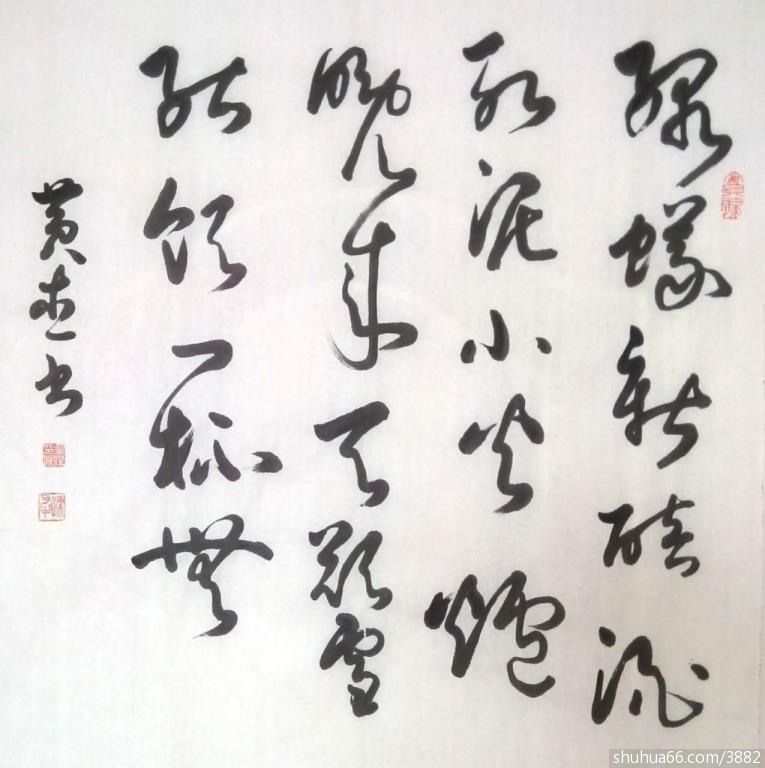 綠蟻新醅酒
紅泥小火爐
晚來天欲雪
能飲一杯無
黄 书
shuhua66.com/3882